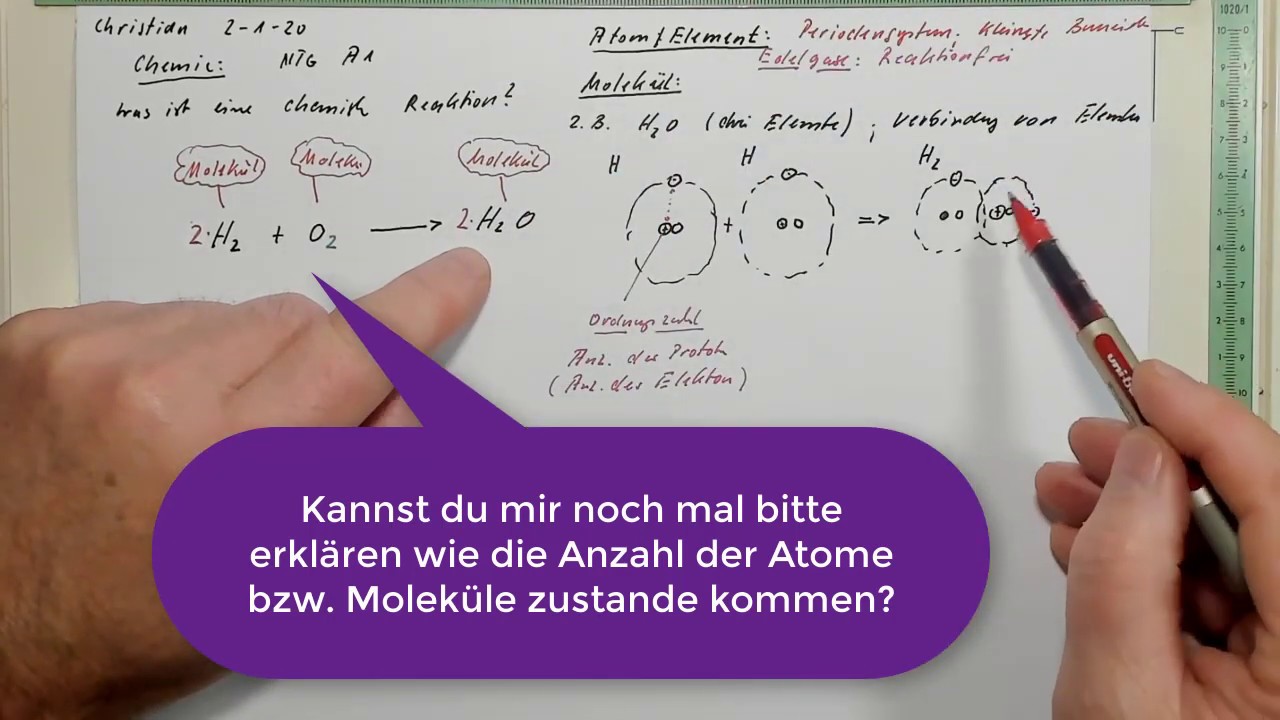 Christian 2-1-20
Chemie: NTG A1
was ist eine chemisch Reaktion?
Molekül Molekü Molekül
2·H₂ + O₂ → 2·H₂O
Atom/Element: Periodensystem; Kleinste
Edelgase: Reaktionfrei
Molekül:
z.B. H₂O (drei Elemte) ; verbindung von
H H H₂
+ =>
Ordnungszahl
Anz. der
(Anz. der Elekton)
1020/1
uni
Kannst du mir noch mal bitte
erklären wie die Anzahl der Atome
bzw. Moleküle zustande kommen?